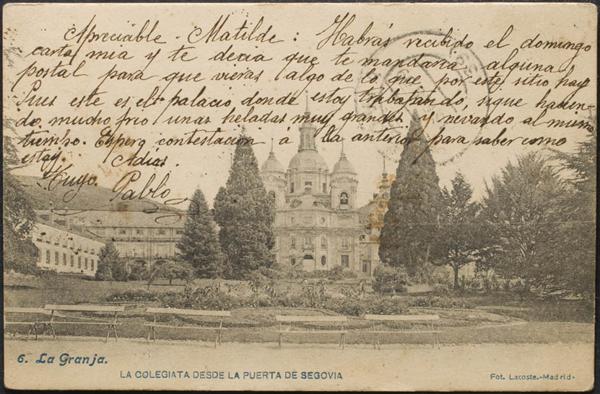 Apreciable - Matilde: Habrás recibido el domingo
carta mia y te decia que te mandaria alguna
postal para que vieras algo de lo que por este sitio hay
Pues este es el palacio, donde estoy trabajando, sigue hacien-
do, mucho frio unas heladas muy grandes y nevando al mismo
tiempo. Espero contestacion á la anterior para saber como
estás. Adios.
Tuyo. Pablo
6. La Granja.
LA COLEGIATA DESDE LA PUERTA DE SEGOVIA
Fot. Lacoste.-Madrid-